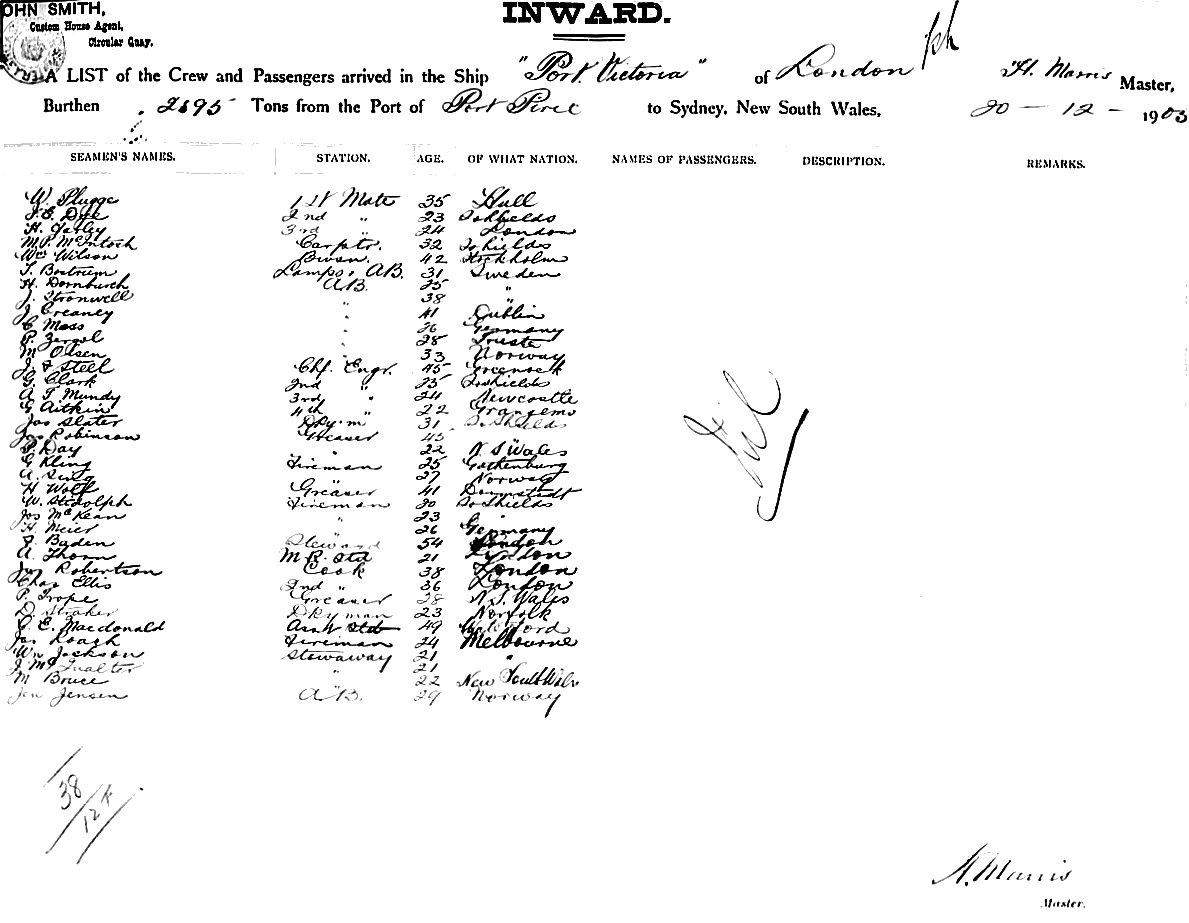 JOHN SMITH,
Custom House Agent,
Circular Quay.
INWARD.
A LIST of the Crew and Passengers arrived in the Ship "Port Victoria" of London H. Marris Master,
Burthen 2695 Tons from the Port of Port Pirie to Sydney, New South Wales, 20 - 12 - 1903
SEAMEN'S NAMES. STATION. AGE. OF WHAT NATION. NAMES OF PASSENGERS. DESCRIPTION. REMARKS.
W. Plugge 1st Mate 35 Hull
Dye 2nd " 23 So Shields
H. 3rd " 24 London
M.P. McIntosh Carptr. 32 So Shields
Wm Wilson Bosun. 42 Stockholm
T. Bostrum Lamps & A.B. 31 Sweden
H. Dornburch A.B. 25 "
J. Stronwell " 38 "
J. Creaney " 41 Dublin
C Mass " 26 Germany
P. " 28 Trieste
M Olsen " 33 Norway
J. Steel Chf. Engr. 45 Greenock
G. Clark 2nd " 25 So Shields
A T Mundy 3rd " 24 Newcastle
G Aitkin 4th " 22
Jas Slater Dkym 31 So Shields
Jas Robinson Greaser 45
P. Day " 22 N. S Wales
G Kling Fireman 25 Gothenburg
A. 27 Norway
H Wolf Greaser 41
W. Stidolph Fireman 20 So Shields
Jos McKean " 23 "
H. Meier 26 Germany
Baden Steward 54 London
A. Thorn M. R. Std 21 London
Jas Robertson Cook 38 London
Chas Ellis 2nd " 36 London
P. Trope Greaser 28 N. S. Wales
D. Straker Dkyman 23 Norfolk
C. E. Macdonald Asst Std 49
Jas Roach Fireman 24 Melbourne
Wm Jackson Stowaway 21 "
J. Mc " 21
M Bruce " 22 New South Wales
Jen Jensen A.B. 29 Norway
Nil
38
H. Marris
Master.